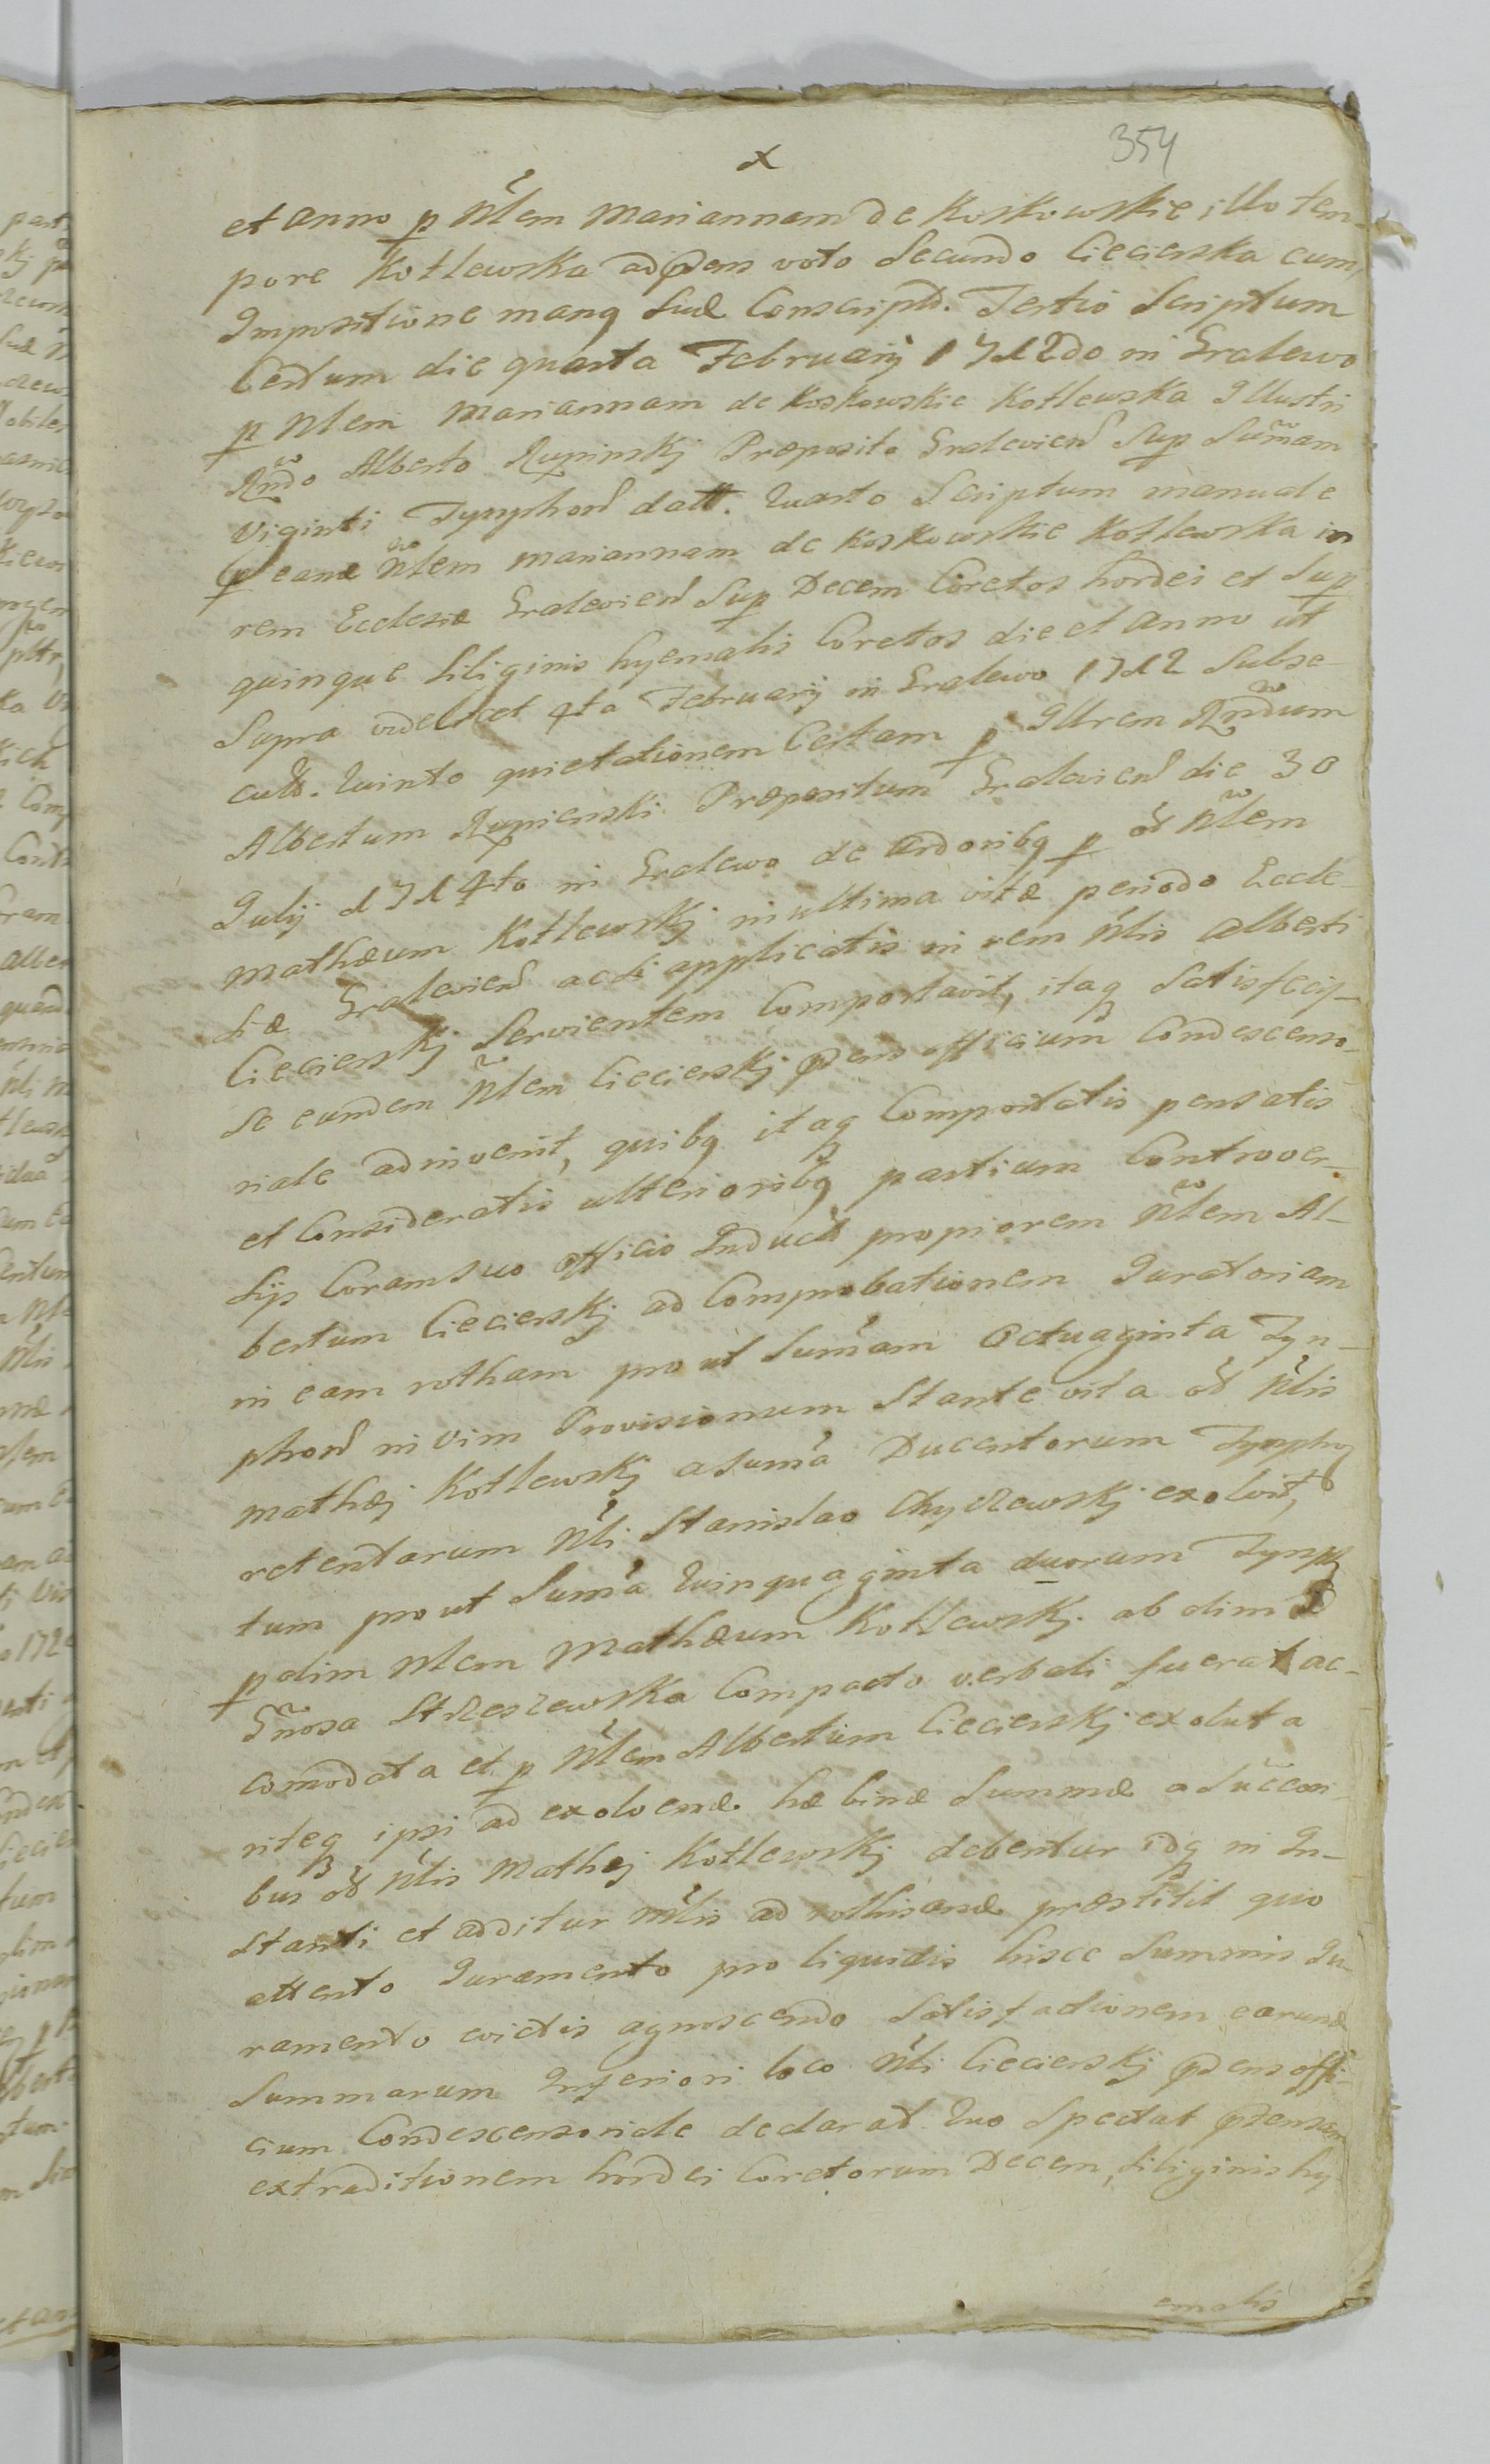 x
354
et anno p Nlem Mariannam de Koskowskie illo tem-
pore Kotlewska adpens voto Secundo Ciecierska cum
Impositione manq suæ Conscript. Tertio Scriptum
Certum die quarta Februarij 1712do in Gralewo
p Nlem Mariannam de Koskowskie Kotlewska Illustri
Rndo Alberto Rupinskj Præposito Gralevien Sup Sumam
Viginti Tynphon datt. Quarto Scriptum manuale
p eand Nlem Mariannam de Koskowskie Kotlewska in
rem Ecclesiæ Gralevien Sup Decem Coretos hordei et Sup
quinque Siliginis hyemalis Coretos die et anno ut
Supra videlicet 4ta Februarij in Gralewo 1712 Subse-
cut. Quinto quietationem Certam p Illrem Rndum
Albertum Rupienski Præpositum Gralevien die 30
Julij 1714to in Gralewo de ardoribq p ol Nlem
Mathæum Kotlewskj in ultima vitæ periodo Eccle-
siæ Gralevien acdi applicatis in rem Nlis Alberti
Ciecierskj Servientem Comportavit, itaq Satisfecis-
se eundem Nlem Ciecierskj pens officium Condescenso-
riale adinvenit, quibq itaq Comportatis pensatis
et Consideratis ulterioribq partium Controver-
sijs Coram suo officio Induct propiorem Nlem Al-
bertum Ciecierskj ad Comprobationem Juratoriam
in eam rotham pro ut Sumam Octuaginta Tyn-
phon in Vim Provisionum Stante vita ol Nlis
Mathæj Kotlewskj a suma Ducentorum Tynph
retentarum Nli Stanislao Chyczewskj exolvit,
tum pro ut Suma Quinquaginta duorum Tynph
p olim Nlem Mathæum Kotlewskj ab olim
Gnosa Strzeszewska Compacto verbali fuerat ac-
comodata et p Nlem Albertum Ciecierskj exoluta
riteq ipsi ad exolvend hæ binæ Summæ a Succesori-
bus ol Nlis Mathej Kotlewskj debentur idq in In-
stanti et additur Mlis ad rothisand præstitit quo
attento Juramento pro liquidis hisce Summis Ju-
ramento evictis agnoscendo Satisfactionem earund
Summarum Inferiori loco Nli Ciecierskj pens offi-
cium Condescensoriale declarat. Quo Spectat prætensam
extraditionem hordei Coretorum Decem, Siliginis hy-
emalis